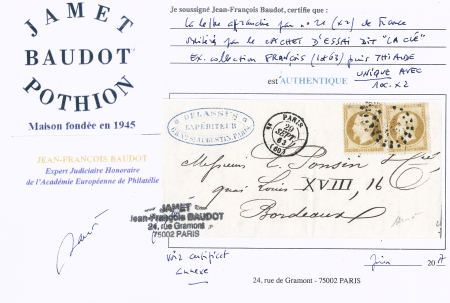 JAMET
BAUDOT
POTHION
Maison fondée en 1945
JEAN-FRANÇOIS BAUDOT
Expert Judiciaire Honoraire
de l'Académie Européenne de Philatélie
Je soussigné Jean-François Baudot, certifie que :
la lettre affranchie par n° 21 (x2) de France
oblitérés par le CACHET D'ESSAI DIT "LA CLÉ"
Ex. collection FRANÇOIS (1863) puis THIAUDE
UNIQUE AVEC
10c. x2
est AUTHENTIQUE
DELASSUS
EXPÉDITEUR
PARIS
29
SEPT
63
(60)
Messieurs L. Ponsin & Cie
quai Louis XVIII, 16
Bordeaux
JAMET
Jean-François BAUDOT
24, rue Gramont
75002 PARIS
Voir certificat
annexe
Juin 2017
24, rue de Gramont - 75002 PARIS